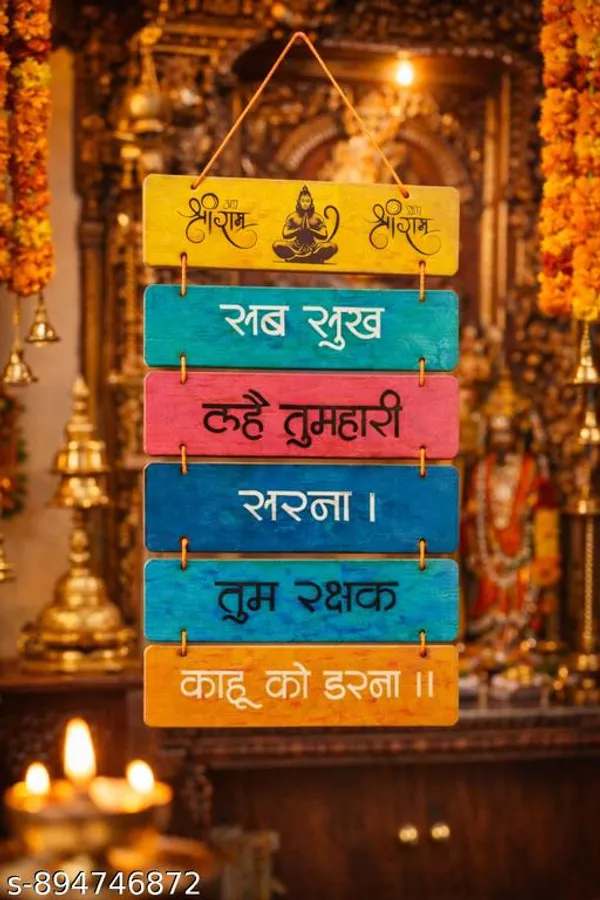 जय श्रीराम जय श्रीराम
सब सुख
कहै तुमहारी
सरना ।
तुम रक्षक
काहू को डरना ।।
s-894746872